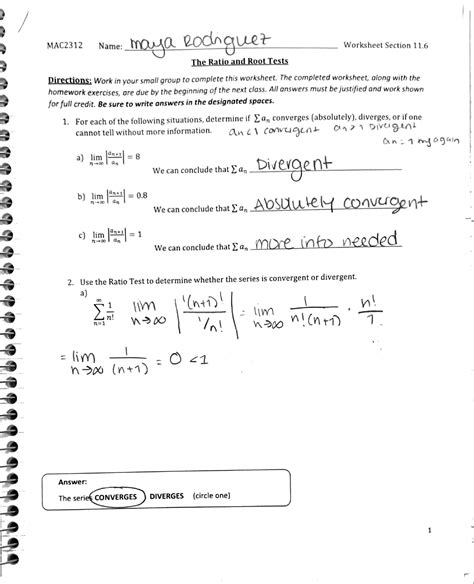 MAC2312 Name: Maya Rodriguez Worksheet Section 11.6
The Ratio and Root Tests
Directions: Work in your small group to complete this worksheet. The completed worksheet, along with the
homework exercises, are due by the beginning of the next class. All answers must be justified and work shown
for full credit. Be sure to write answers in the designated spaces.
1. For each of the following situations, determine if ∑aₙ converges (absolutely), diverges, or if one
cannot tell without more information. an<1 convergent an>1 Divergent
an=1 try again
a) lim n→∞ |aₙ₊₁/aₙ| = 8
We can conclude that ∑aₙ Divergent
b) lim n→∞ |aₙ₊₁/aₙ| = 0.8
We can conclude that ∑aₙ Absolutely convergent
c) lim n→∞ |aₙ₊₁/aₙ| = 1
We can conclude that ∑aₙ more info needed
2. Use the Ratio Test to determine whether the series is convergent or divergent.
a)
∞∑n=1 1/n! lim n→∞ |1/(n+1)! / 1/n!| = lim n→∞ 1/n!(n+1) · n!/1
= lim n→∞ 1/(n+1) = 0 <1
Answer:
The series CONVERGES DIVERGES (circle one)
1